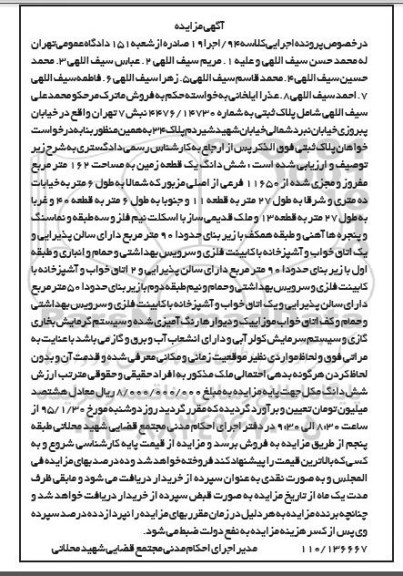 آگهی مزایده
در خصوص پرونده اجرایی کلاسه ۹۴/ اجرا ۱۹ صادره از شعبه ۱۵۱ دادگاه عمومی تهران
له محمد حسن سیف اللهی و علیه ۱. مریم سیف اللهی ۲. عباس سیف اللهی ۳. محمد
حسین سیف اللهی ۴. محمد قاسم سیف اللهی ۵. زهرا سیف اللهی ۶. فاطمه سیف اللهی
۷. احمد سیف اللهی ۸. عذرا ایلخانی به خواسته حکم به فروش ماترک مرحکو محمد علی
سیف اللهی شامل پلاک ثبتی به شماره ۴۴۷۶/۱۴۷۳۰ نبش ۷ تهران واقع در خیابان
پیروزی خیابان نبرد شمالی خیابان شهید شیردم پلاک ۳۴ به همین منظور بنا به درخواست
خواهان پلاک ثبتی فوق الذکر پس از ارجاع به کارشناس رسمی دادگستری به شرح زیر
توصیف و ارزیابی شده است: شش دانگ یک قطعه زمین به مساحت ۱۶۲ متر مربع
مفروز و مجزی شده از ۱۱۶۵۰ فرعی از اصلی مزبور که شمالا به طول ۶ متر به خیابات
ده متری و شرقا به طول ۲۷ متر به قطعه ۱۱ و جنوبا به طول ۶ متر به قطعه ۴۰ و غربا
به طول ۲۷ متر به قطعه ۱۳ و ملک قدیمی ساز با اسکلت نیم فلز و سه طبقه و نماسنگ
و پنجره ها آهنی و طبقه همکف با زیر بنای حدودا ۹۰ متر مربع دارای سالن پذیرایی و
یک اتاق خواب و آشپزخانه با کابینت فلزی و سرویس بهداشتی و حمام و انباری و طبقه
اول با زیر بنای حدودا ۹۰ متر مربع دارای سالن پذیرایی و ۲ اتاق خواب و آشپزخانه با
کابینت فلزی و سرویس بهداشتی و حمام و نیم طبقه دوم با زیر بنای حدودا ۵۰ متر مربع
دارای سالن پذیرایی و یک اتاق خواب و آشپزخانه با کابینت فلزی و سرویس بهداشتی
و حمام و کف اتاق خواب موزاییک و دیوارها رنگ آمیزی شده و سیستم گرمایش بخاری
گازی و سیستم سرمایش کولر آبی و دارای انشعاب آب و برق و گاز می باشد با عنایت به
مراتب فوق و لحاظ مواردی نظیر موقعیت زمانی و مکانی معرفی شده و قدمت آن و بدون
لحاظ کردن هرگونه بدهی احتمالی ملک مذکور به افراد حقیقی و حقوقی مترتب ارزش
شش دانگ مکل جهت پایه مزایده به مبلغ ۸/۰۰۰/۰۰۰/۰۰۰ ریال معادل هشتصد
میلیون تومان تعیین و برآورد گردیده که مقرر گردید روز دوشنبه مورخ ۹۵/۱/۳۰ از
ساعت ۸:۳۰ الی ۹:۳۰ در دفتر اجرای احکام مدنی مجتمع قضایی شهید محلاتی طبقه
پنجم از طریق مزایده به فروش برسد و مزایده از قیمت پایه کارشناسی شروع و به
کسی که بالاترین قیمت را پیشنهاد کند فروخته خواهد شد و ده درصد بهای مزایده فی
المجلس و به صورت نقدی به عنوان سپرده از خریدار دریافت می شود و مابقی ظرف
مدت یک ماه از تاریخ مزایده به صورت قبض سپرده از خریدار دریافت خواهد شد و
چنانچه برنده مزایده به هر دلیل در زمان مقرر بهای مزایده را نپردازد ده درصد سپرده
وی پس از کسر هزینه مزایده به نفع دولت ضبط می شود.
۱۱۰/۱۳۶۶۶۷ مدیر اجرای احکام مدنی مجتمع قضایی شهید محلاتی